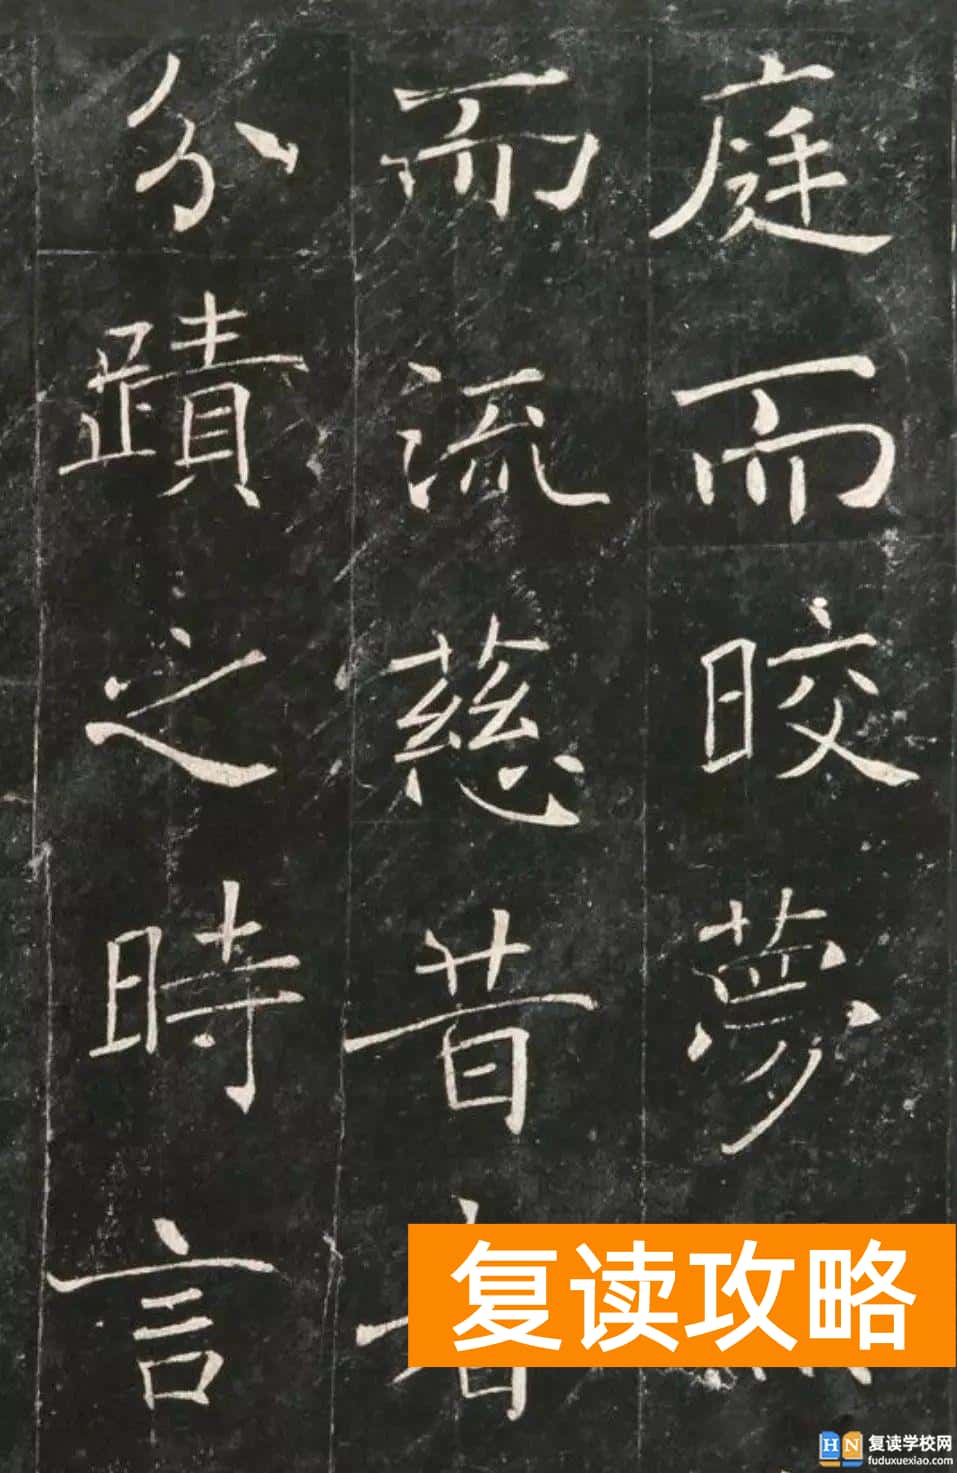 庭而皎夢
而流慈昔者
分蹟之時言
复读攻略
HN 复读学校网
fuduxuexiao.com